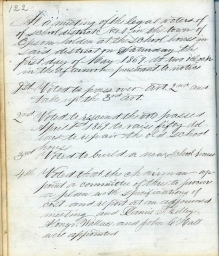 122
At a meeting of the legal voters of
of school district No. 1 in the town of
Epsom holden at the school house in
said district on Saturday the
first day of May 1869, at two o'clock
in the afternoon pursuant to notice
1st Voted to pass over the 2nd and
take up the 3d art.
2nd Voted to rescind the vote passed
April 1869 to raise fifty dol
to repair the old school
house
3 Voted to build a new school house
4th Voted that the chairman ap-
point a committee of three to procure
a plan with specifications of
cost and report at an adjourned
meeting, and
and John
were appointed